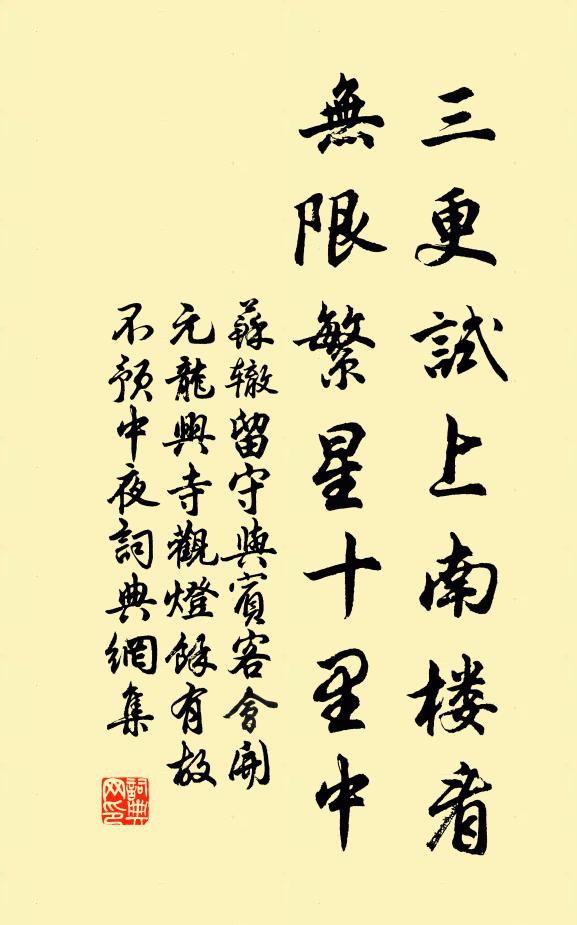 三更試上南楼看
無限繁星十里中
蘇轍留守與賓客會開
元龍興寺觀燈餘有故
不預中夜詞典網集
詞典
网印